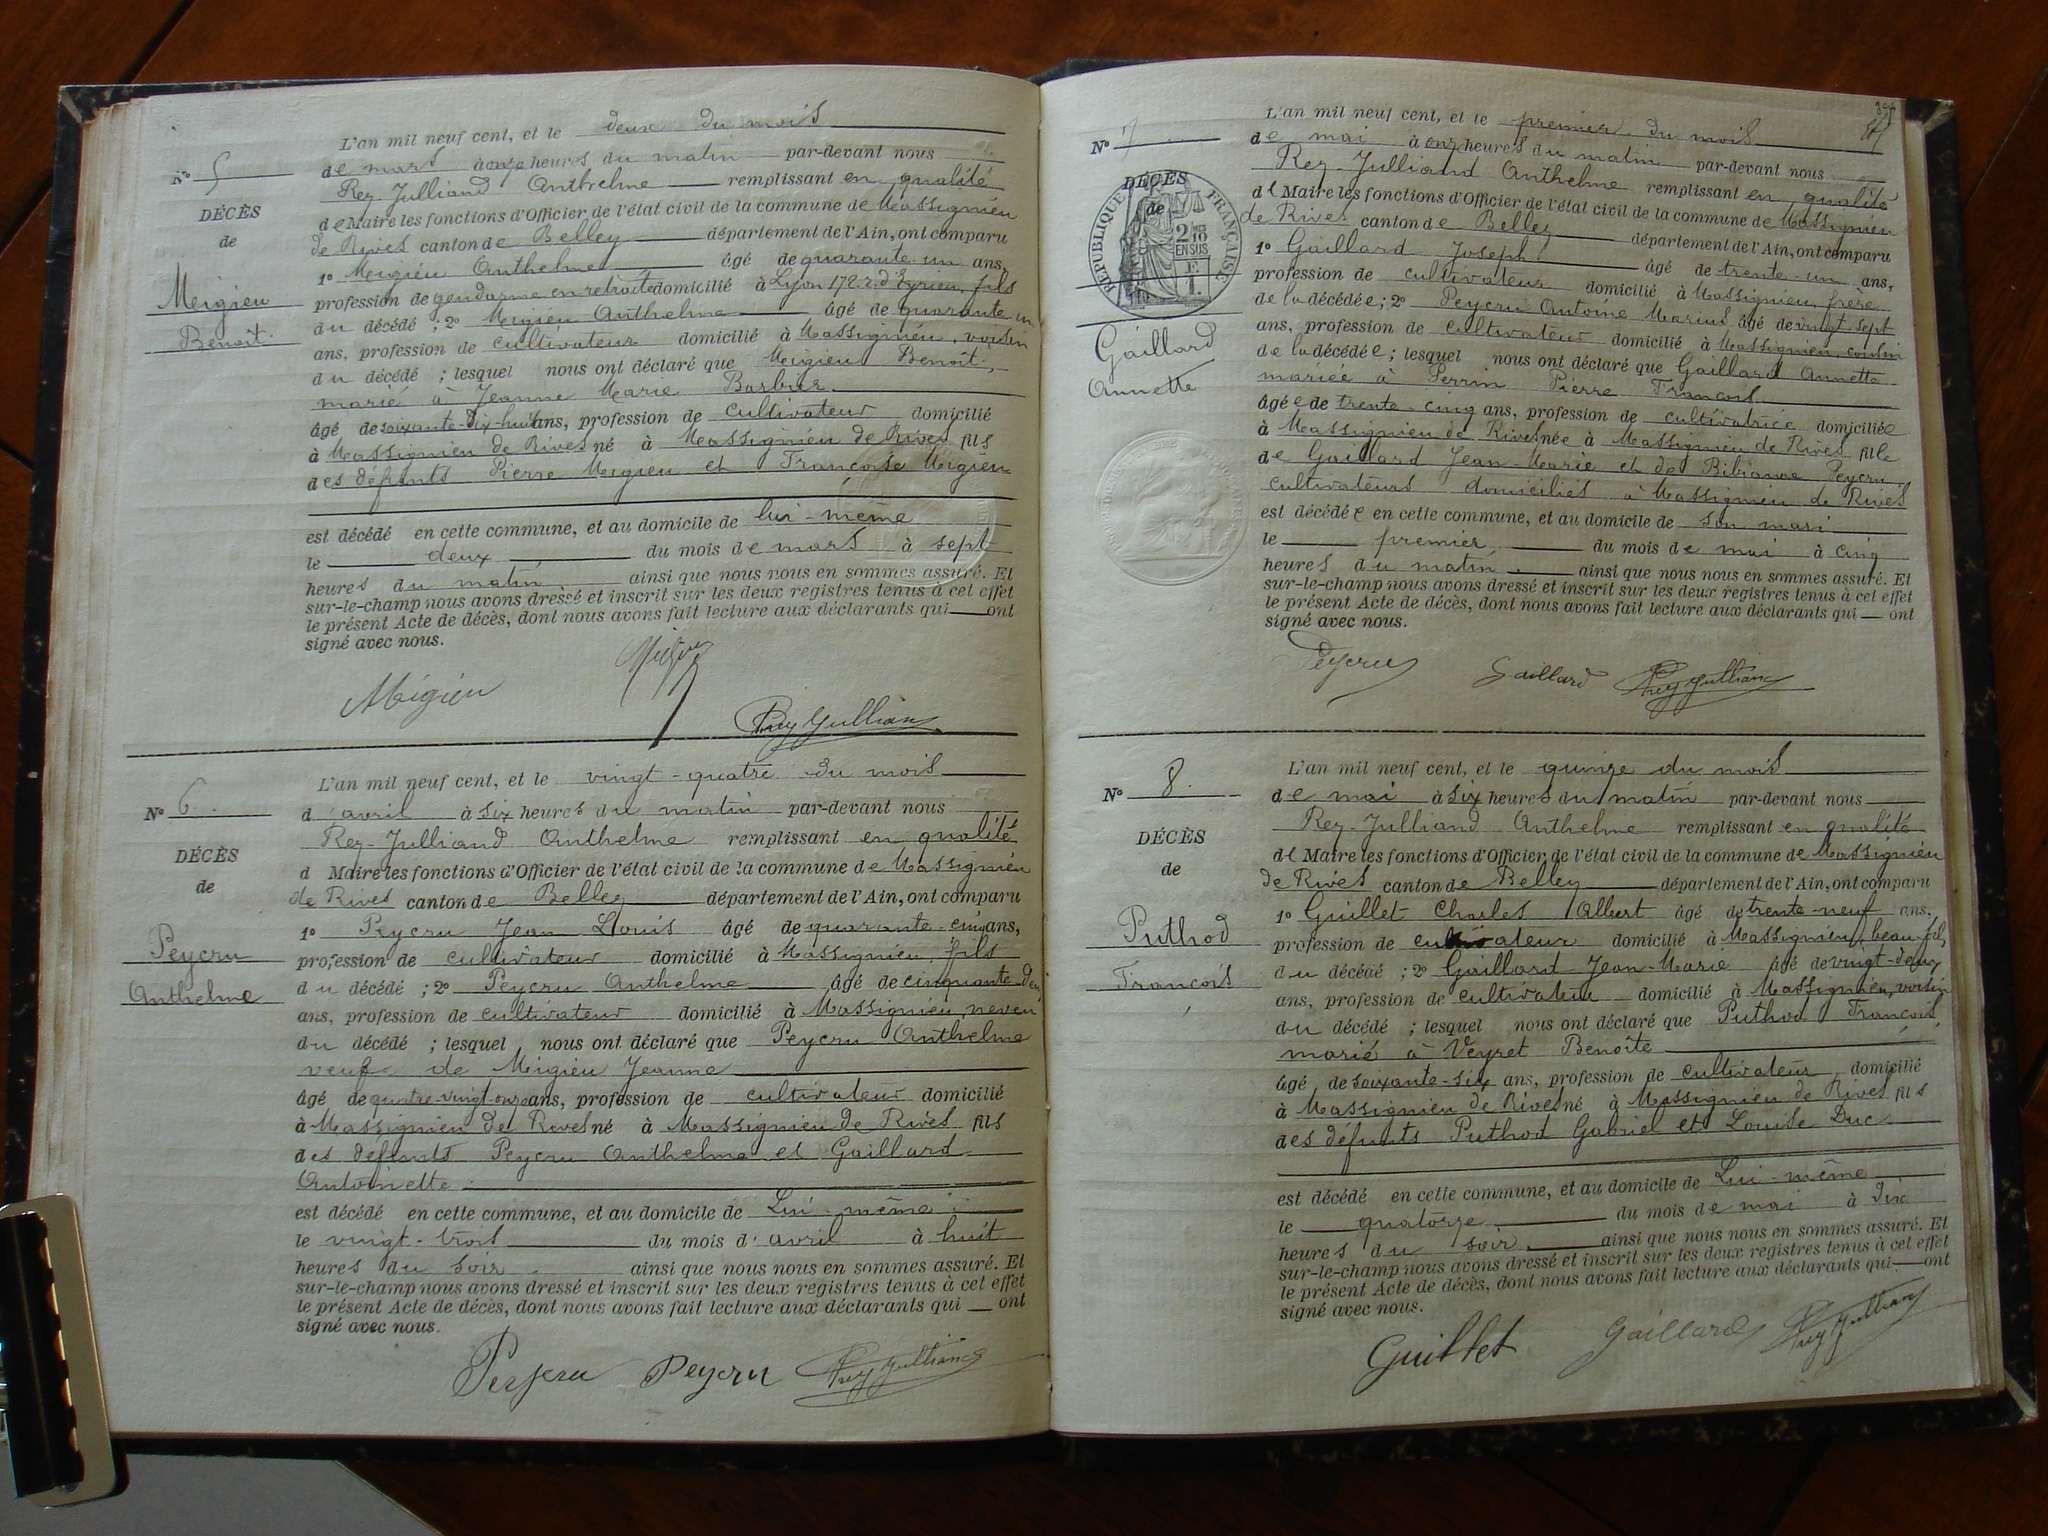 L'an mil neuf cent, et le deux du mois
de mars à onze heures du matin par-devant nous
Rey-Julliand Anthelme remplissant en qualité
de Maire les fonctions d'Officier de l'état civil de la commune de Massignieu
de Rives canton de Belley département de l'Ain, ont comparu
1º Migieu Anthelme âgé de quarante-un ans,
profession de gendarme en retraite domicilié à Lyon 172 r. d' fils
du décédé ; 2º Migieu Anthelme âgé de quarante un
ans, profession de cultivateur domicilié à Massignieu, voisin
du décédé ; lesquel nous ont déclaré que Migieu Benoît,
marié à Jeanne Marie Barbier
âgé de soixante-dix-huit ans, profession de cultivateur domicilié
à Massignieu de Rives né à Massignieu de Rives fils
des défunts Pierre Migieu et Françoise Migieu
est décédé en cette commune, et au domicile de lui-même
le deux du mois de mars à sept
heures du matin ainsi que nous nous en sommes assuré. Et
sur-le-champ nous avons dressé et inscrit sur les deux registres tenus à cet effet
le présent Acte de décès, dont nous avons fait lecture aux déclarants qui ont
signé avec nous.
Nº 5
DÉCÈS
de
Meigieu
Benoît.
Migieu
Migieu
Rey Jullian
L'an mil neuf cent, et le vingt-quatre du mois
d'avril à six heures du matin par-devant nous
Rey-Julliand Anthelme remplissant en qualité
d Maire les fonctions d'Officier de l'état civil de la commune de Massignieu
de Rives canton de Belley département de l'Ain, ont comparu
1º Peycru Jean Louis âgé de quarante-cinq ans,
profession de cultivateur domicilié à Massignieu, fils
du décédé ; 2º Peycru Anthelme âgé de cinquante-deux
ans, profession de cultivateur domicilié à Massignieu, neveu
du décédé ; lesquel nous ont déclaré que Peycru Anthelme
veuf de Migieu Jeanne
âgé de quatre-vingt-onze ans, profession de cultivateur domicilié
à Massignieu de Rives né à Massignieu de Rives fils
des défunts Peycru Anthelme et Gaillard
Antoinette
est décédé en cette commune, et au domicile de Lui-même
le vingt-trois du mois d'avril à huit
heures du soir ainsi que nous nous en sommes assuré. Et
sur-le-champ nous avons dressé et inscrit sur les deux registres tenus à cet effet
le présent Acte de décès, dont nous avons fait lecture aux déclarants qui ont
signé avec nous.
Nº 6.
DÉCÈS
de
Peycru
Anthelme
Peycru Peycru Rey Jullian
L'an mil neuf cent, et le premier du mois
de mai à onze heures du matin par-devant nous
Rey-Julliand Anthelme remplissant en qualité
de Maire les fonctions d'Officier de l'état civil de la commune de Massignieu
de Rives canton de Belley département de l'Ain, ont comparu
1º Gaillard Joseph âgé de trente-un ans,
profession de cultivateur domicilié à Massignieu, frère
de la décédée ; 2º Peycru Antoine Marius âgé de vingt-sept
ans, profession de cultivateur domicilié à Massignieu, cousin
de la décédée ; lesquel nous ont déclaré que Gaillard Annette
mariée à Perrin Pierre François
âgée de trente-cinq ans, profession de cultivatrice domiciliée
à Massignieu de Rives née à Massignieu de Rives fille
de Gaillard Jean-Marie et de Bibianne Peycru
cultivateurs domiciliés à Massignieu de Rives
est décédée en cette commune, et au domicile de son mari
le premier du mois de mai à cinq
heures du matin ainsi que nous nous en sommes assuré. Et
sur-le-champ nous avons dressé et inscrit sur les deux registres tenus à cet effet
le présent Acte de décès, dont nous avons fait lecture aux déclarants qui ont
signé avec nous.
Nº 7
DÉCÈS
de
RÉPUBLIQUE FRANÇAISE
EN SUS
Gaillard
Annette
Peycru Gaillard Rey Jullian
L'an mil neuf cent, et le quinze du mois
de mai à six heures du matin par-devant nous
Rey-Julliand Anthelme remplissant en qualité
de Maire les fonctions d'Officier de l'état civil de la commune de Massignieu
de Rives canton de Belley département de l'Ain, ont comparu
1º Guillet Charles Albert âgé de trente-neuf ans,
profession de cultivateur domicilié à Massignieu, beau-fils
du décédé ; 2º Gaillard Jean-Marie âgé de vingt-deux
ans, profession de cultivateur domicilié à Massignieu, voisin
du décédé ; lesquel nous ont déclaré que Puthod François,
marié à Veyret Benoîte
âgé de soixante-six ans, profession de cultivateur domicilié
à Massignieu de Rives né à Massignieu de Rives fils
des défunts Puthod Gabriel et Louise Duc
est décédé en cette commune, et au domicile de Lui-même
le quatorze du mois de mai à dix
heures du soir ainsi que nous nous en sommes assuré. Et
sur-le-champ nous avons dressé et inscrit sur les deux registres tenus à cet effet
le présent Acte de décès, dont nous avons fait lecture aux déclarants qui ont
signé avec nous.
Nº 8.
DÉCÈS
de
Puthod
François
Guillet Gaillard Rey Jullian